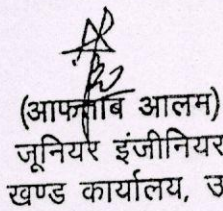 (आफताब आलम)
जूनियर इंजीनियर
खण्ड कार्यालय, उ